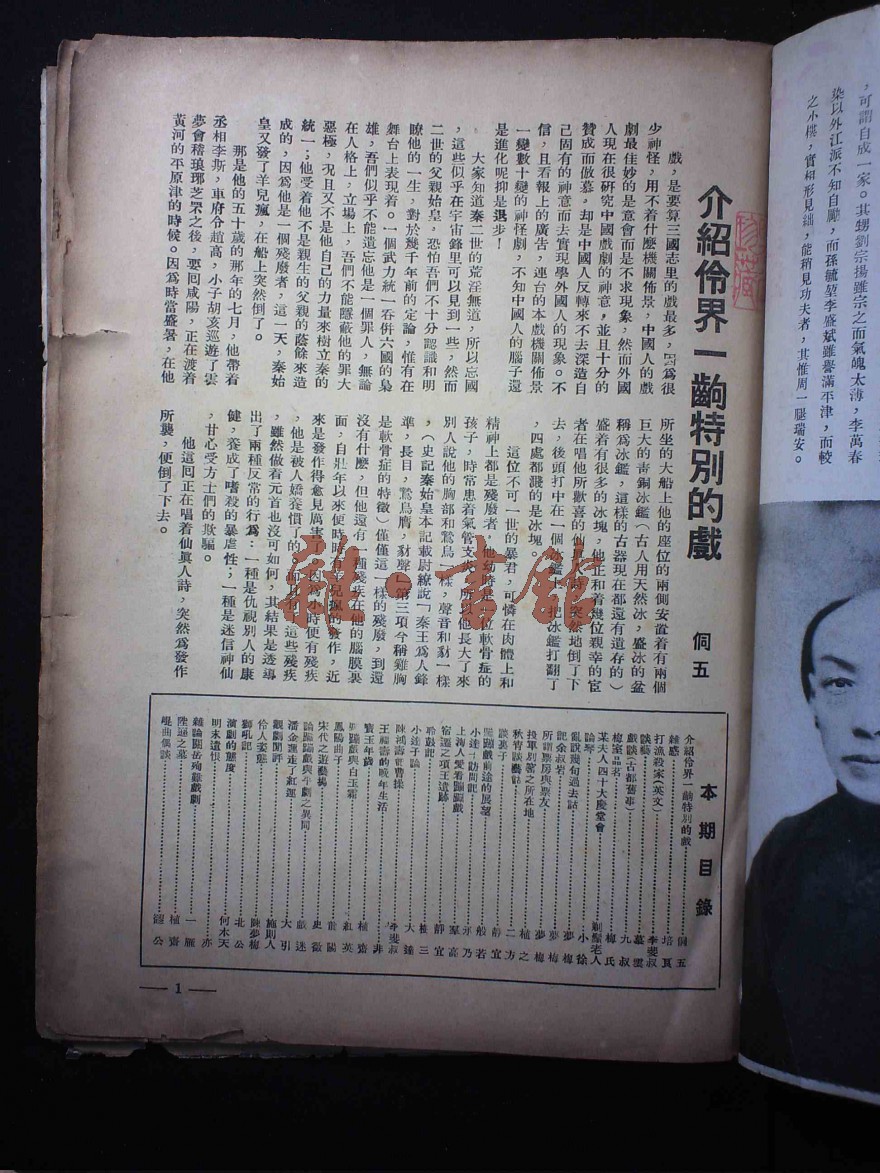 ，可謂自成一家。其甥劉宗揚雖宗之而氣魄太薄，李萬春
染以外江派不知自勵，而孫毓堃李盛斌雖譽滿平津，而較
之小樓，實相形見絀，能稍見功夫者，其惟周一腿瑞安。
珍藏
介紹伶界一齣特別的戲
侗五
戲，是要算三國志里的戲最多，因爲很
少神怪，用不着什麼機關佈景，中國人的戲
劇最佳妙的是意會而是不求現象，然而外國
人現在很硏究中國戲劇的神意，並且十分的
贊成而倣慕，却是中國人反轉來不去深造自
己固有的神意而去實現學外國人的現象。不
信，且看報上的廣告，連台的本戲機關佈景
一變數十變的神怪劇，不知中國人的腦子還
是進化呢抑是退步！
大家知道秦二世的荒淫無道，所以忘國
，這些似乎在宇宙鋒里可以見到一些，然而
二世的父親始皇，恐怕吾們不十分認識和明
瞭他的一生，對於幾千年前的定論，惟有在
舞台上表現着。一個武力統一吞併六國的梟
雄，吾們似乎不能遺忘他是一個罪人，無論
在人格上，立場上，吾們不能隱蔽他的罪大
惡極，况且又不是他自己的力量來樹立秦的
統一；他受着他不是親生的父親的蔭餘來造
成的，因爲他是一個殘廢者，這一天，秦始
皇又發了羊兒瘋，在船上突然倒了。
那是他的五十歲的那年的七月，他帶着
丞相李斯，車府令趙高，小子胡亥巡遊了雲
夢會稽琅玡芝罘之後，要回咸陽，正在渡着
黃河的平原津的時候。因爲時當盛暑，在他
所坐的大船上他的座位的兩側安置着有兩個
巨大的靑銅冰鑑（古人用天然冰，盛冰的盆
稱爲冰鑑，這樣的古器現在都還有遺存的）
盛着有很多的冰塊，他正和着幾位親幸的宦
者在唱他所歡喜的仙眞人詩，突然地倒了下
去，後頭打中在一個冰鑑上，把冰鑑打翻了
，四處都濺的是冰塊。
這位不可一世的暴君，可憐在肉體上和
精神上都是殘廢者，他幼時是一位軟骨症的
孩子，時常患着氣管支炎，所以他長大了來
別人說他的胸部和鷙鳥一樣，聲音和豺一樣
，（史記秦始皇本記載尉繚說「秦王爲人鋒
準，長目，鷙鳥膺，豺聲」第三項今稱雞胸
是軟骨症的特徵）僅僅這一樣的殘廢，到還
沒有什麼，但他還有一種殘疾在他的腦膜裏
面，自壯年以來便時時有羊兒瘋的發作，近
來是發作得愈見厲害了。因爲小時便有殘疾
，他是被人嬌養慣了的，而且有了這些殘疾
，雖然做着元首也沒可如何，其結果是透導
出了兩種反常的行爲：一種是仇視別人的康
健，養成了嗜殺的暴虐性；一種是迷信神仙
，甘心受方士們的欺騙。
他這囘正在唱着仙眞人詩，突然爲發作
所襲，便倒了下去。
本期目錄
介紹伶界一齣特別的戲……侗五
雜感……培頁
打漁殺家（英文）……李斐叔
談藝……慕雲
戲談（古都舊事）……九叔
梅室品茗……梅氏
某夫人四十大慶堂會……剃髮老人
論琴……小徐
亂說幾句過去話……夢梅
記余叔岩……夢梅
所謂票房與票友……夢梅
投軍別窰之所在地……植之
秋宵談藝錄……二方
談蓋子……靜宜
蹦蹦戲前途的展望……般若
小達子訪問記……亦乃
上海人愛看蹦蹦戲……羣高
宿遷之項王遺跡……靜宜
聆鼓記……椿三
小達子論……大鐘
陳鴻壽活曹操
王福壽的晚年生活……李斐叔
寳玉年齒……非
蹦蹦戲與白玉霜……植齋
鳳陽曲子……紅英
宋代之遊藝塲……龍陽
論蹦蹦戲與平劇之異同……史徵
潘金蓮走了紅運……戲迷
觀劇閒評……大引
伶人姿態……施則人
獅吼記……陳夢梅
演劇的態度……北公
明末遺恨……何木天
雜論關岳殉難戲劇……亦
陸遜之墓……一雁
崑曲偶談……植齋
—1—
雅·書館